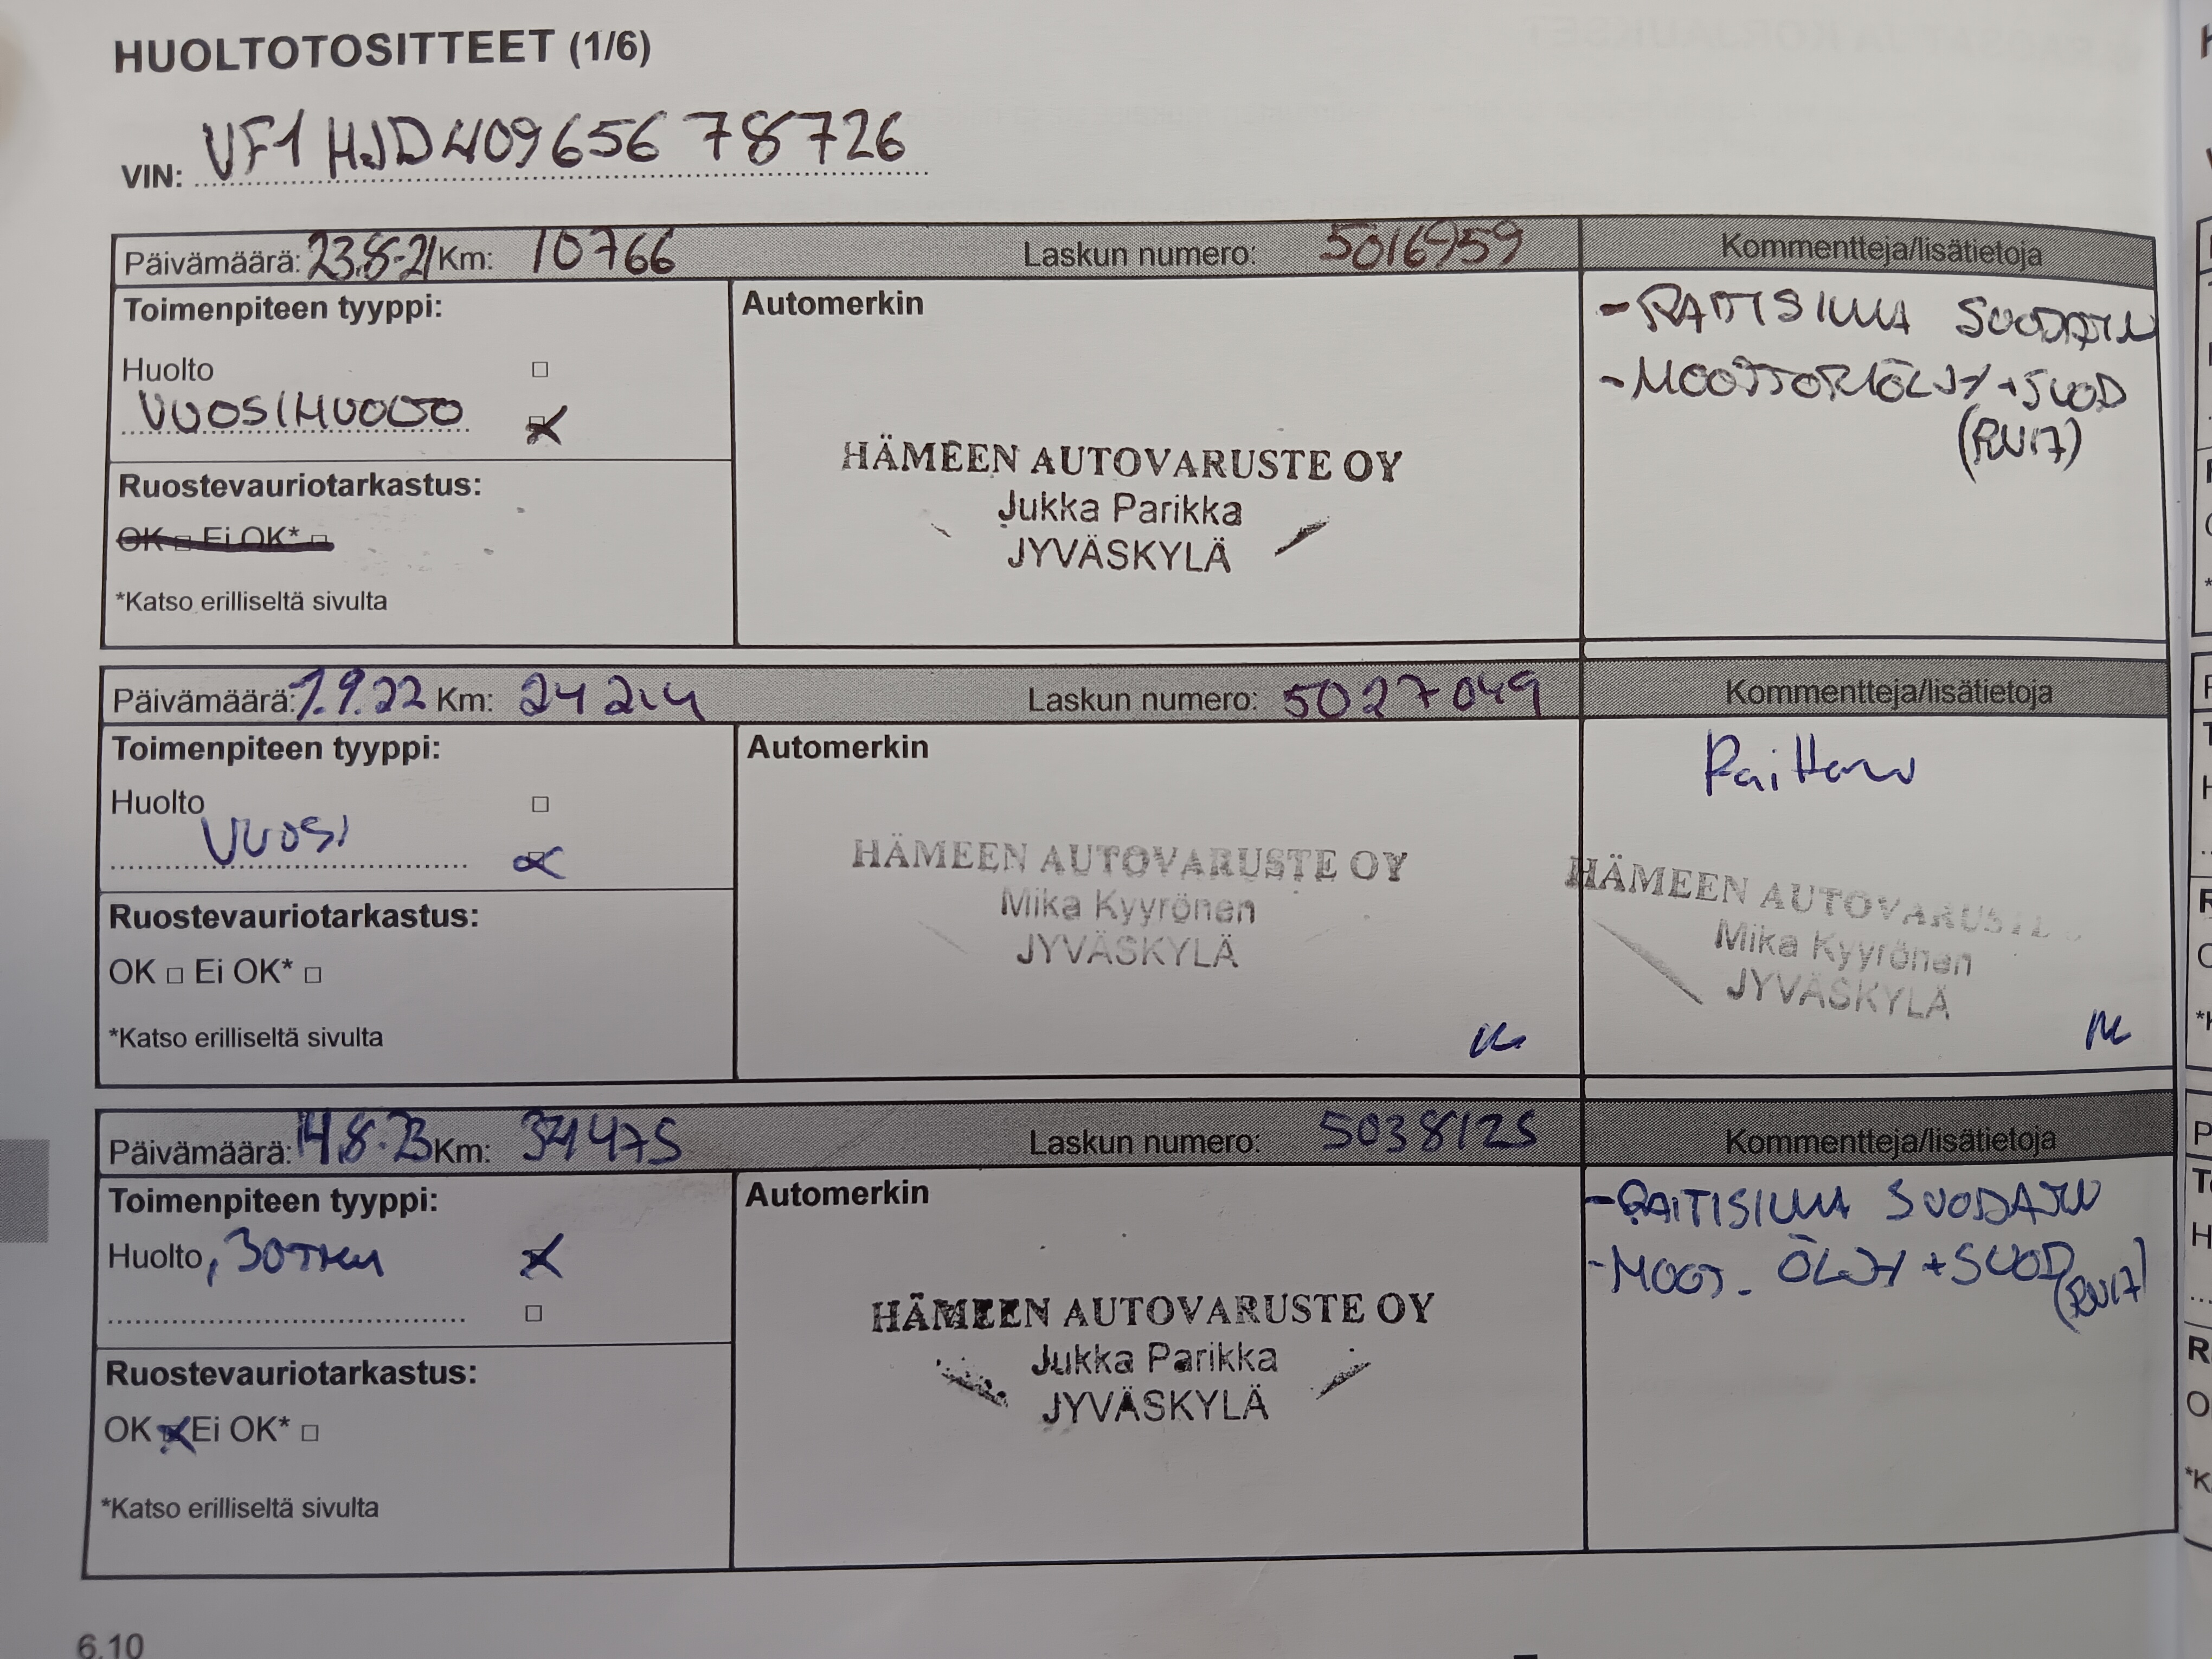 HUOLTOTOSITTEET (1/6)
VIN: VF1 HJD409656 78726
Päivämäärä: 23.8-21 Km: 10766 Laskun numero: 5016959 Kommentteja/lisätietoja
Toimenpiteen tyyppi:
Huolto □
VUOSIHUOLTO
Ruostevauriotarkastus:
OK □ Ei OK* □
*Katso erilliseltä sivulta
Automerkin
HÄMEEN AUTOVARUSTE OY
Jukka Parikka
JYVÄSKYLÄ
- RAITISILMA SUODATIN
- MOOTTORIÖLJY + SUOD
(RN17)
Päivämäärä: 1.9.22 Km: 24214 Laskun numero: 5027049 Kommentteja/lisätietoja
Toimenpiteen tyyppi:
Huolto □
VUOSI
Ruostevauriotarkastus:
OK □ Ei OK* □
*Katso erilliseltä sivulta
Automerkin
HÄMEEN AUTOVARUSTE OY
Mika Kyyrönen
JYVÄSKYLÄ
HÄMEEN AUTOVARUSTE
Mika Kyyrönen
JYVÄSKYLÄ
Päivämäärä: 14.8.23 Km: 34475 Laskun numero: 5038125 Kommentteja/lisätietoja
Toimenpiteen tyyppi:
Huolto, 30TKM
□
Ruostevauriotarkastus:
OK Ei OK* □
*Katso erilliseltä sivulta
Automerkin
HÄMEEN AUTOVARUSTE OY
Jukka Parikka
JYVÄSKYLÄ
- RAITISILMA SUODATIN
- MOOT. ÖLJY + SUOD (RN17)
6.10